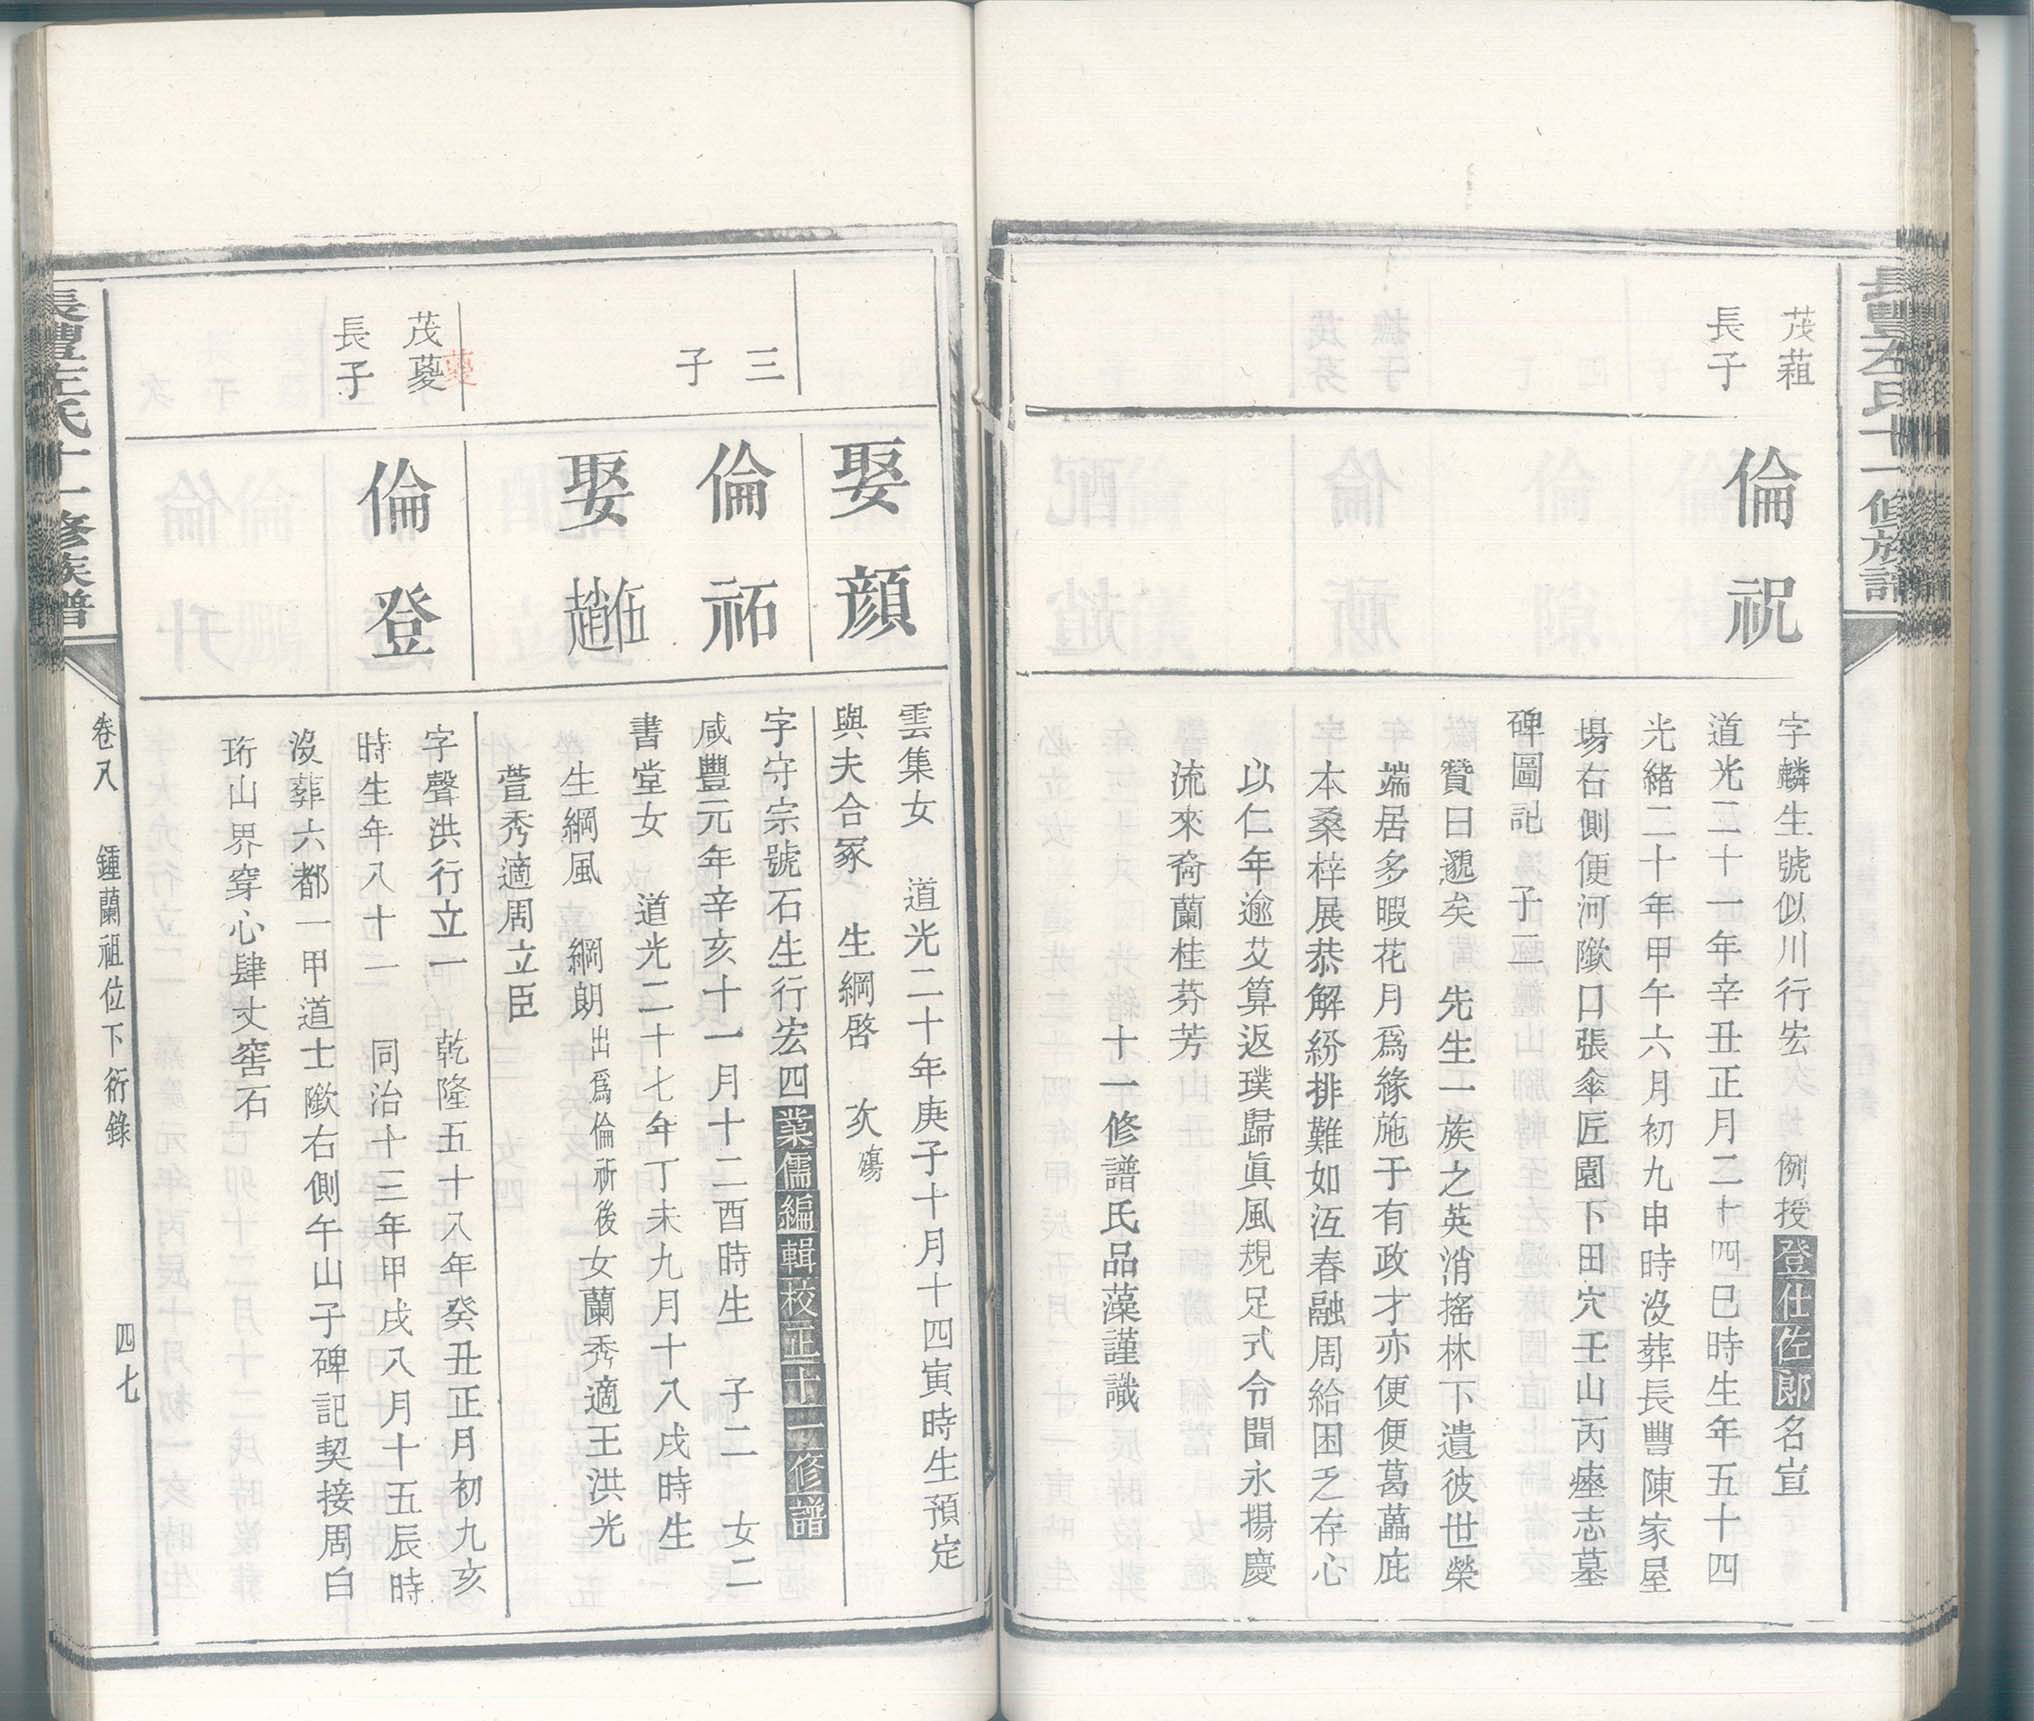 長豐左氏十一修族譜
茂蒩
長子
倫祝
字麟生號似川行宏次 例授登仕佐郎名宣
道光二十一年辛丑正月二十四巳時生年五十四
光緒二十年甲午六月初九申時沒葬長豐陳家屋
場右側便河墩口張傘匠園下田穴壬山丙瘞志墓
碑圖記 子二
贊曰遯矣 先生一族之英消搖林下遺彼世榮
端居多暇花月爲緣施于有政才亦便便葛藟庇
本桑梓展恭解紛排難如沍春融周給困乏存心
以仁年逾艾算返璞歸眞風規足式令聞永揚慶
流來裔蘭桂芬芳
十一修譜氏品藻謹識
娶顏
雲集女 道光二十年庚子十月十四寅時生預定
與夫合冢 生綱啓 亥殤
三
子
倫祏
字守宗號石生行宏四業儒編輯校正十一修譜
咸豐元年辛亥十一月十二酉時生 子二 女二
娶伍趙
書堂女 道光二十七年丁未九月十八戌時生
生綱風 綱朗出爲倫祈後女蘭秀適王洪光
萱秀適周立臣
茂蘷
蘷
長子
倫登
字聲洪行立一 乾隆五十八年癸丑正月初九亥
時生年八十二 同治十三年甲戌八月十五辰時
沒葬六都一甲道士墩右側午山子碑記契接周白
珩山界穿心肆丈窖石
長豐左氏十一修族譜
卷八 鍾蘭祖位下衍錄 四七